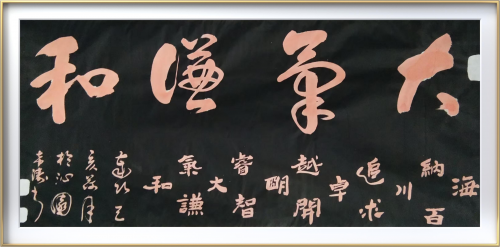 大氣謙和
海
納百
川
追求
卓
越開
明
睿智
大
氣謙
和
己
亥 月
於沁園